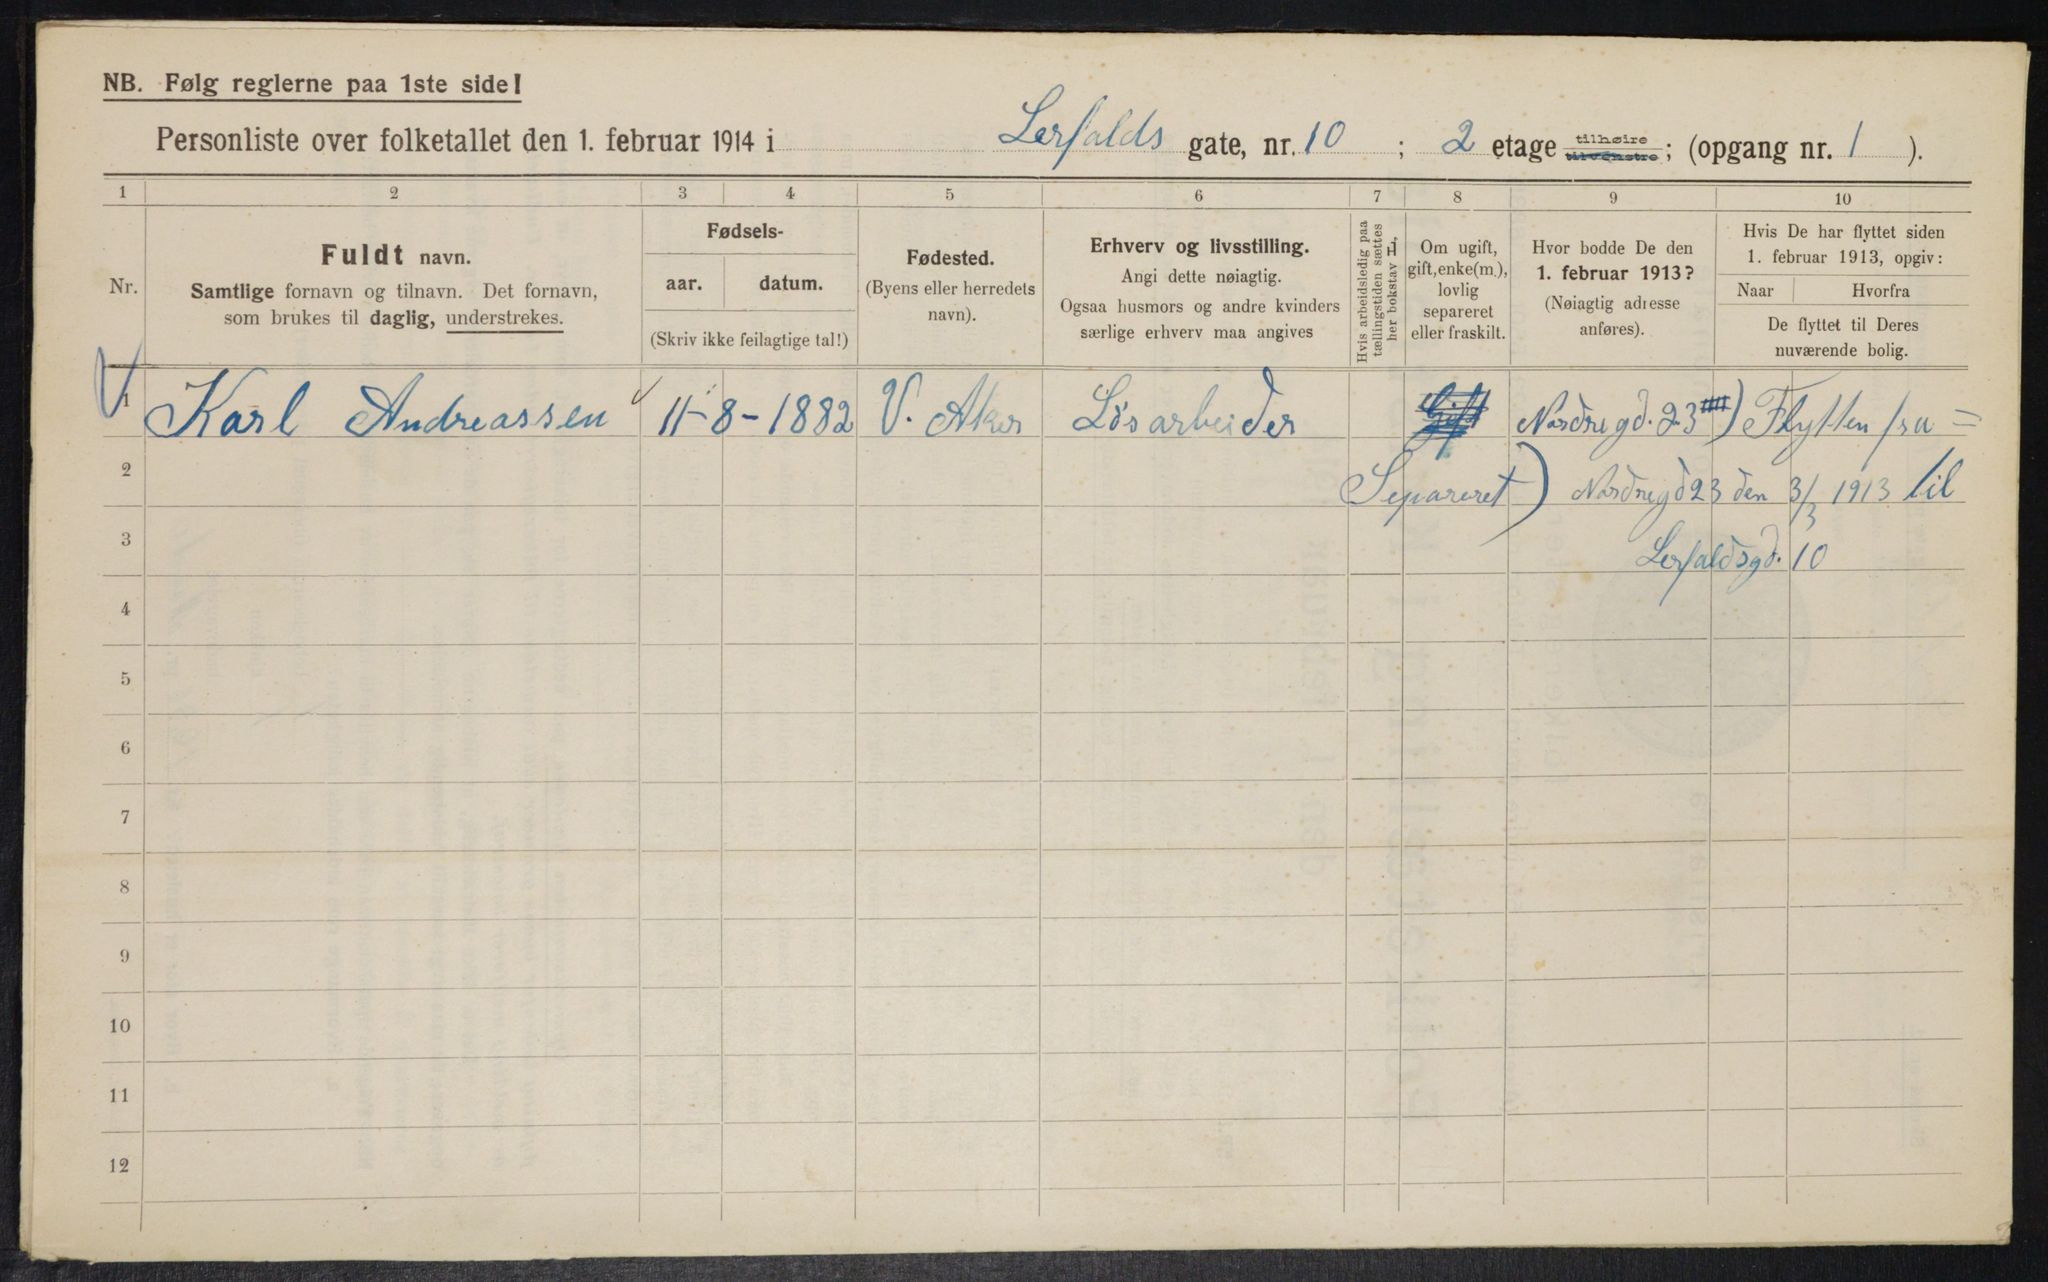 NB. Følg reglerne paa 1ste side!
Personliste over folketallet den 1. februar 1914 i Lerfalds gate, nr. 10 ; 2 etage tilhøire tilvenstre ; (opgang nr. 1 ).
1 2 3 4 5 6 7 8 9 10
Nr.
Fuldt navn.
Samtlige fornavn og tilnavn. Det fornavn,
som brukes til daglig, understrekes.
Fødsels-
aar. datum.
(Skriv ikke feilagtige tal!)
Fødested.
(Byens eller herredets
navn).
Erhverv og livsstilling.
Angi dette nøiagtig.
Ogsaa husmors og andre kvinders
særlige erhverv maa angives
Hvis arbeidsledig paa
tællingstiden sættes
her bokstav L,
Om ugift,
gift, enke(m.),
lovlig
separeret
eller fraskilt.
Hvor bodde De den
1. februar 1913?
(Nøiagtig adresse
anføres).
Hvis De har flyttet siden
1. februar 1913, opgiv:
Naar Hvorfra
De flyttet til Deres
nuværende bolig.
1 Karl Andreassen 11-8-1882 V. Aker Løsarbeider Gift Nordregd. 23 ) Flytten fra =
2 Separeret ) Nordregd 23 den 3/3 1913 til
3 Lerfaldsgd. 10
4
5
6
7
8
9
10
11
12